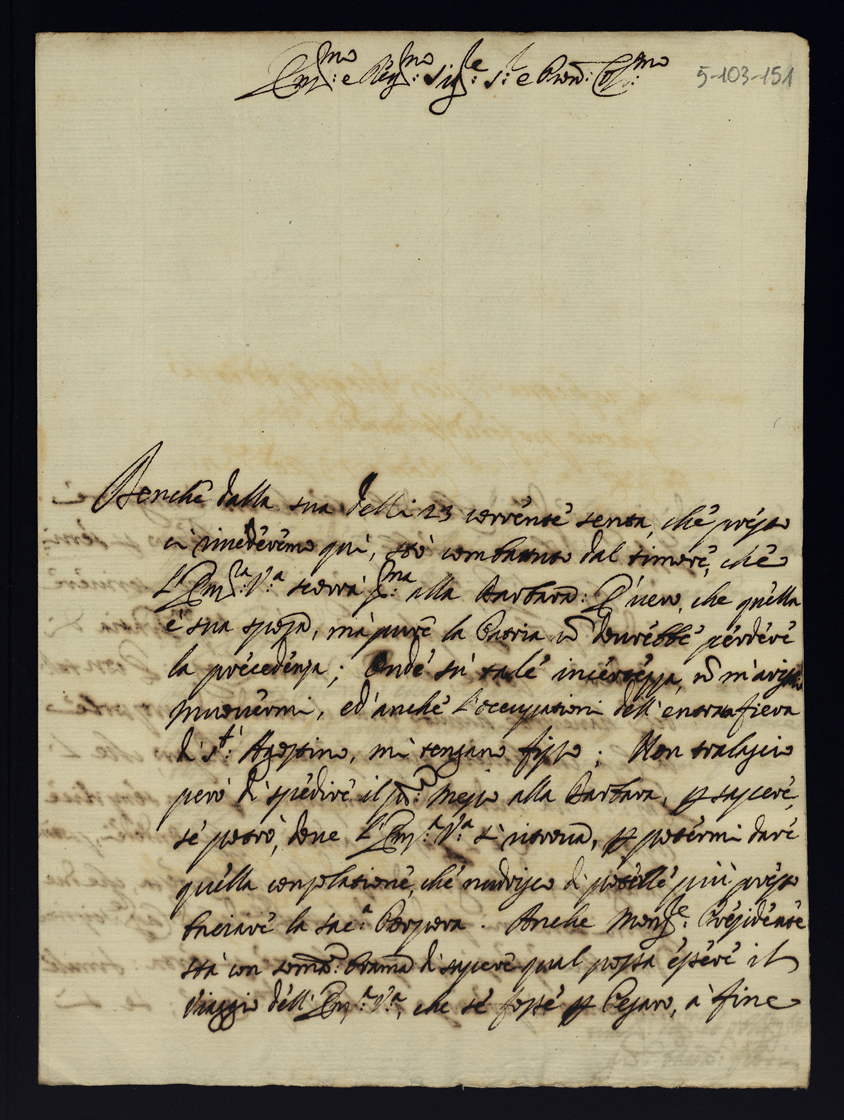 Em.mo e Re.mo Sig.re S.r e Pron: Col.mo
5-103-151
Benche dalla sua delli 23 corrente senta, che presto
ci rivederemo quì, stò combattuto dal timore, che
l'Em.za V.a scorrà p.ma alla Barbara: È vero, che quella
è sua sposa, mà pure la Patria nõ dourebbe perdere
la precedenza; Onde sù tale incertezza, nõ m'arris
muovermi, ed' anche l'occupationi dell' entrata fiera
di S.t Agostino, mi tengano fisso; Non tralascio
però di spedire il pñte Messo alla Barbara, p sapere,
se potrò, doue l'Em.a V.a si ritroua, p potermi dare
quella consolatione, che nudrisco di poterle più presto
baciare la sac.a Porpora. Anche Mons.re Presidente
stà con somã brama di sapere qual possa essere il
viaggio dell' Em.a V.a, che se fosse p Pesaro, à fine